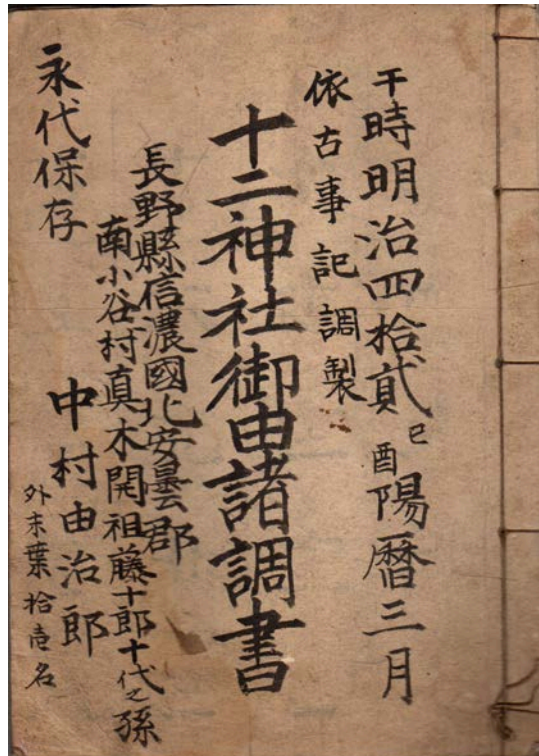 干時明治四拾貳己酉陽曆三月
依古事記調製
十二神社御由諸調書
長野縣信濃國北安曇郡
南小谷村真木開祖藤十郎十代之孫
中村由治郎
外末葉拾壱名
永代保存